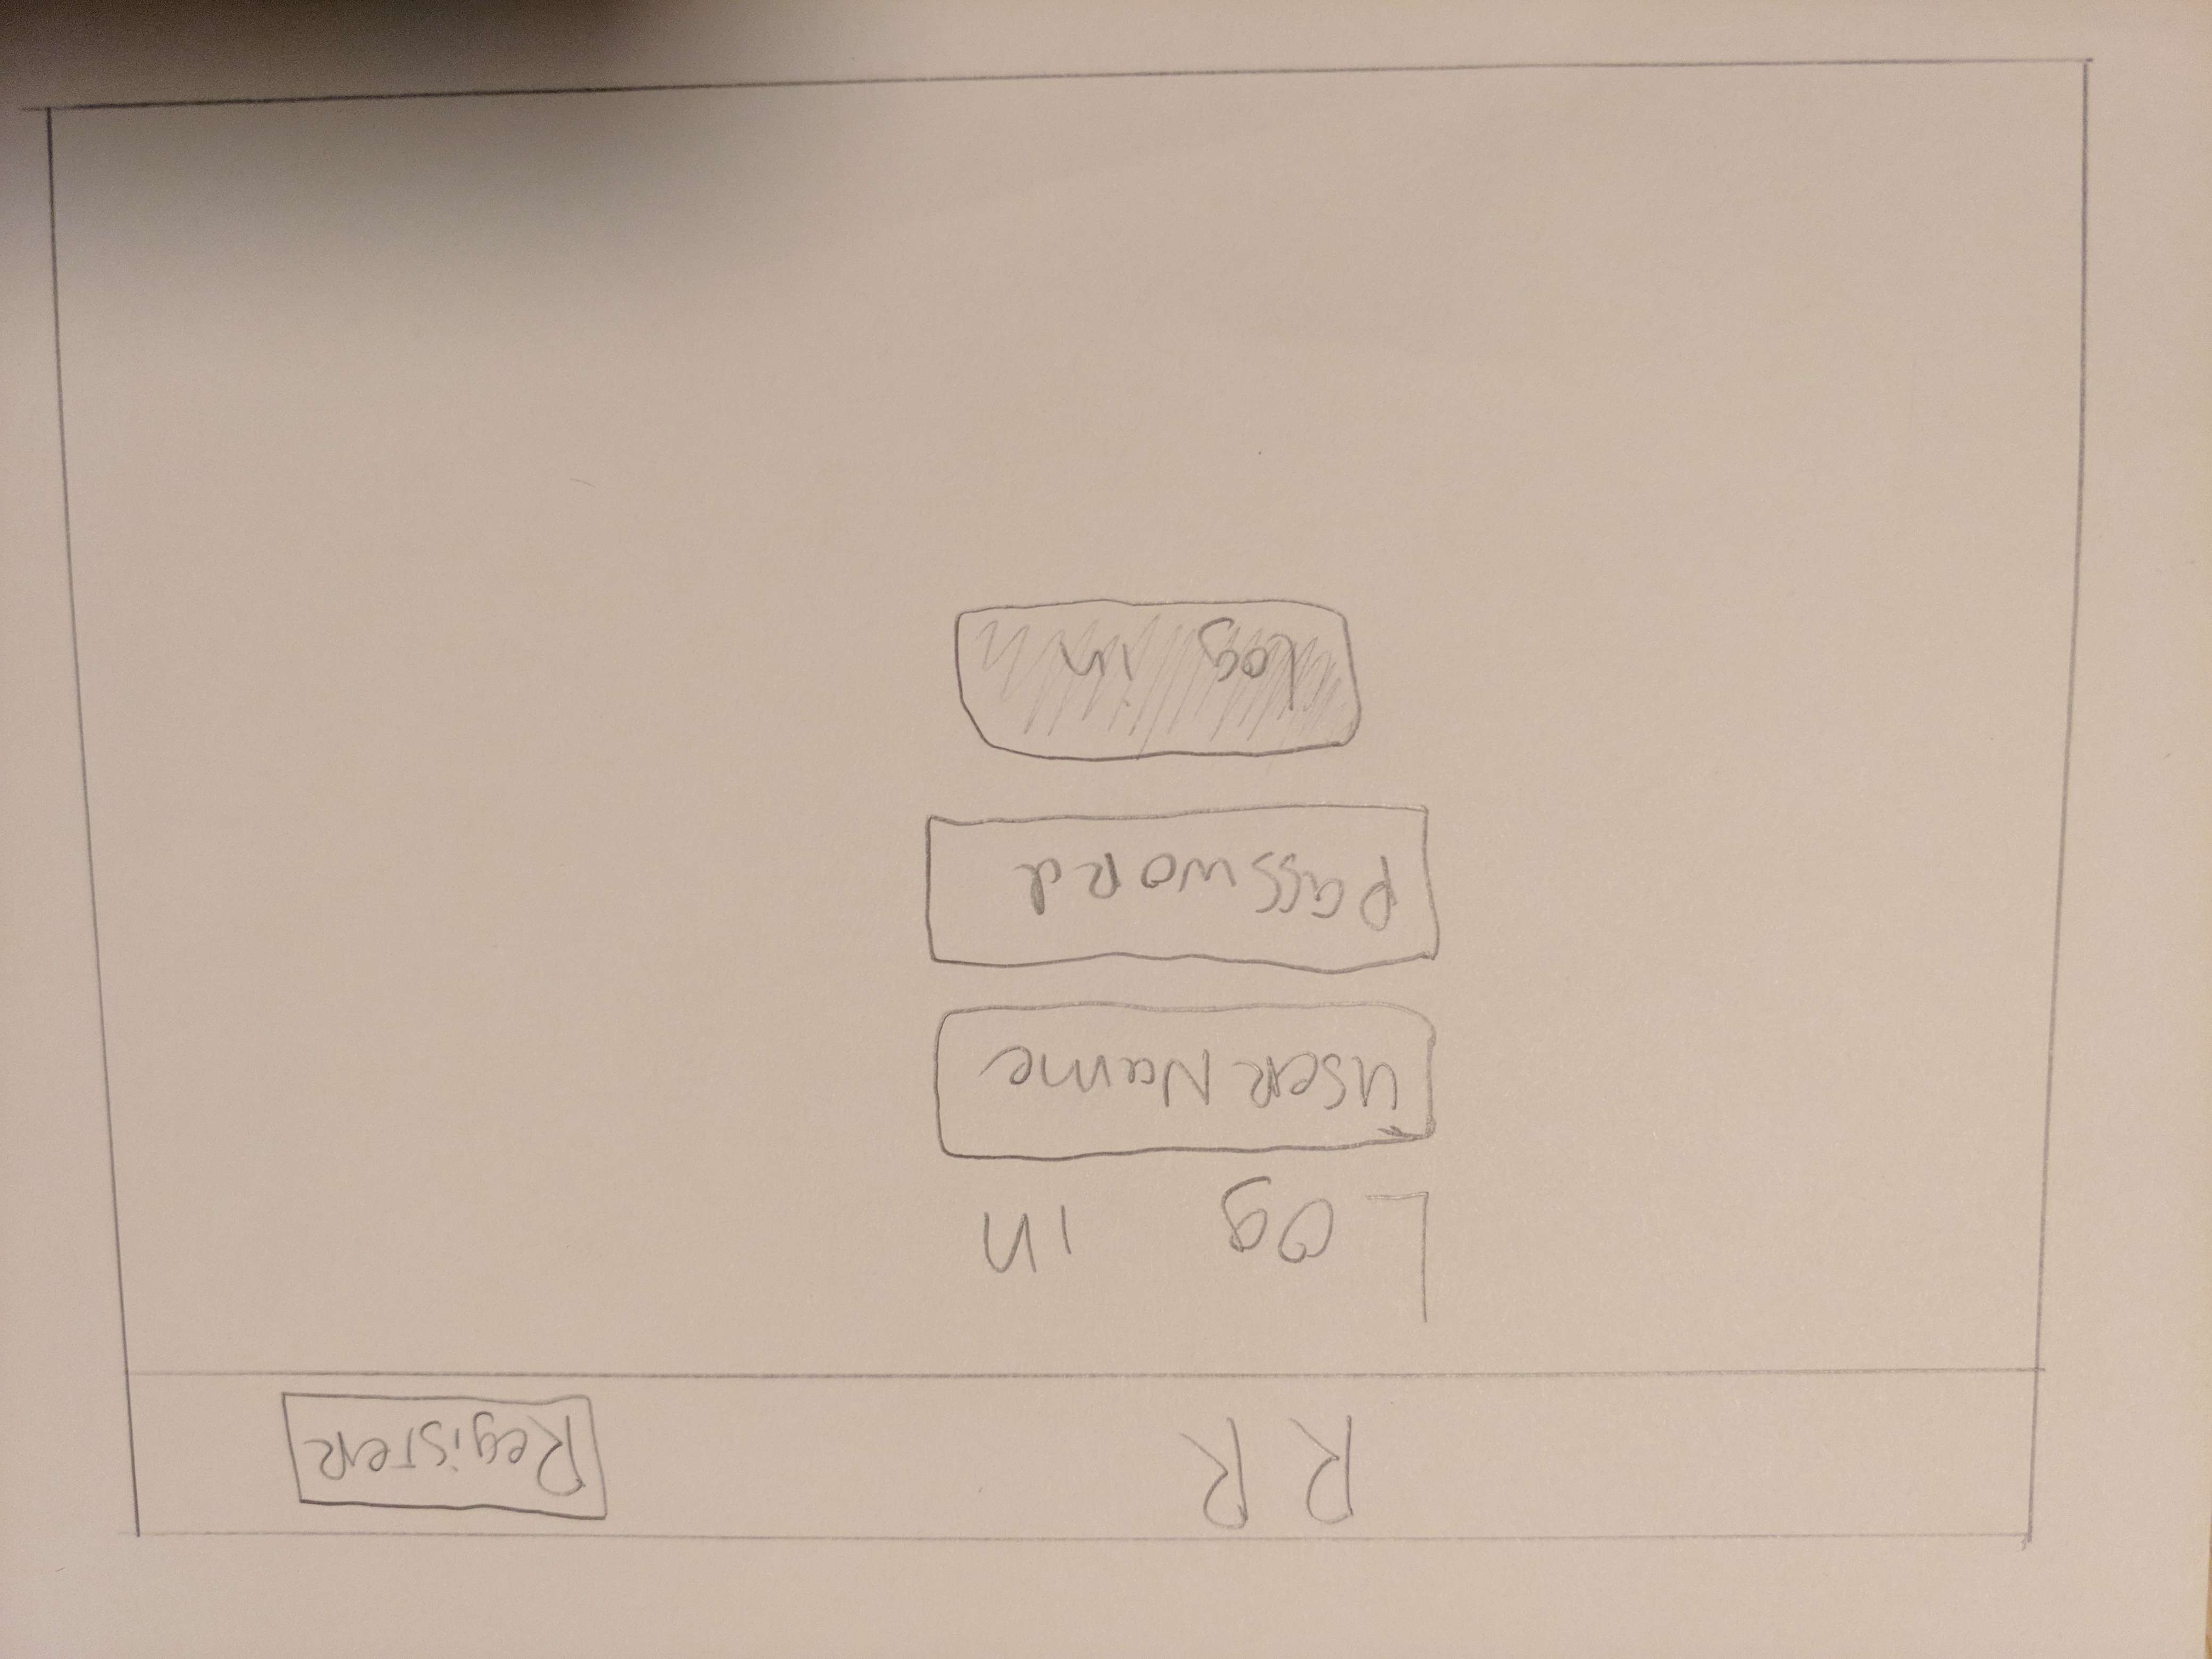 RR
Register
Log in
UserName
Password
Log in